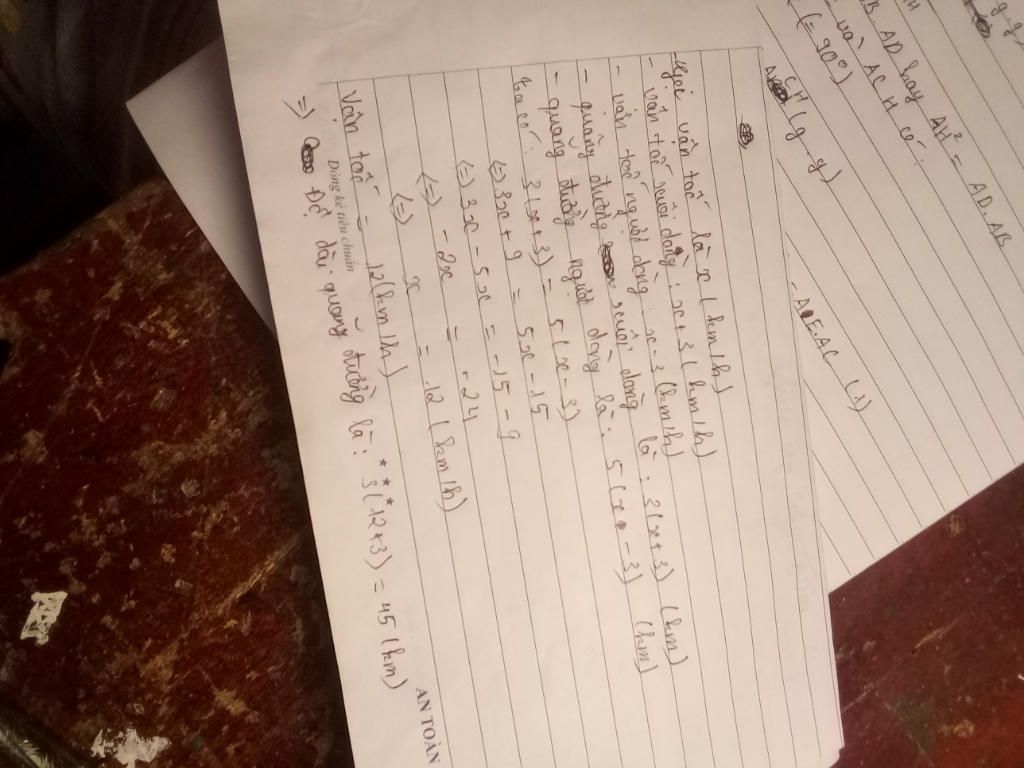 Gọi vận tốc là x (km/h)
- vận tốc xuôi dòng: x+3 (km/h)
- vận tốc người dòng: x-3 (km/h)
- quãng đường xuôi dòng là: 3(x+3) (km)
- quãng đường người dòng là: 5(x-3) (km)
ta có: 3(x+3) = 5(x-3)
(=) 3x+9 = 5x-15
(=) 3x-5x = -15-9
(=) -2x = -24
(=) x = 12 (km/h)
Vận tốc = 12 (km/h)
=) Độ dài quãng đường là: 3(12+3) = 45 (km)
Dòng kẻ tiêu chuẩn
***
AN TOÀN
g-g)
B. AD hay AH² = AD.AB
và ACH có:
(= 90°)
CH (g-g)
AE.AC (1)